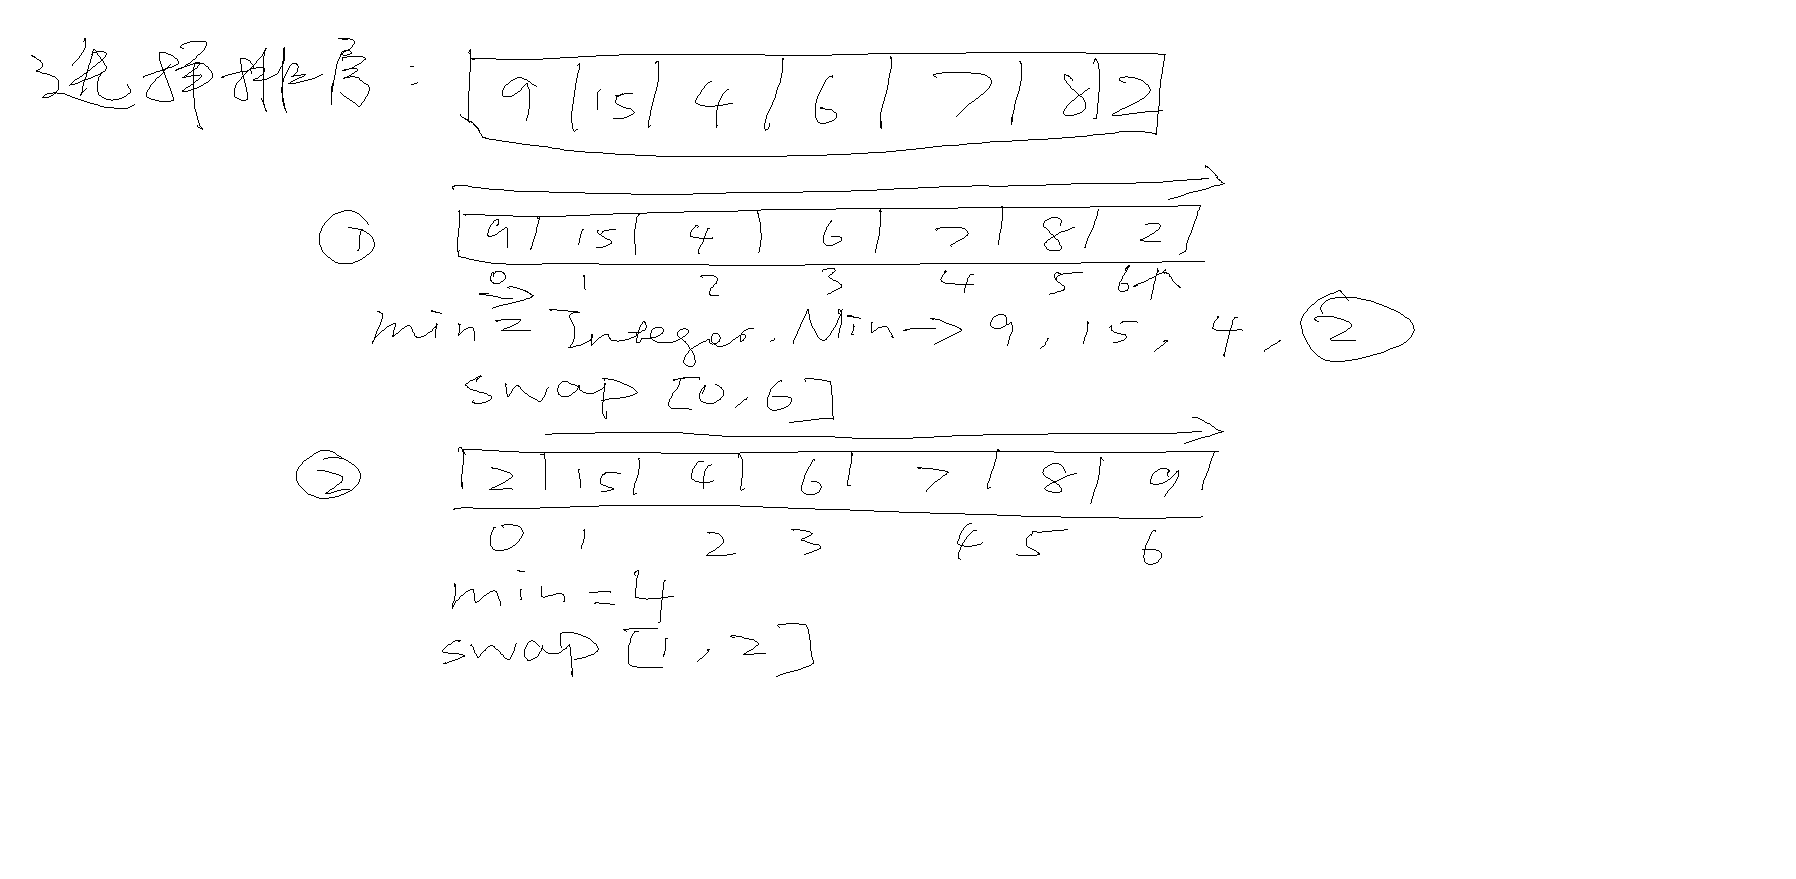 选择排序: 9 15 4 6 7 8 2
① 9 15 4 6 7 8 2
0 1 2 3 4 5 6
min = Integer.Min → 9, 15, 4, 2
swap [0, 6]
② 2 15 4 6 7 8 9
0 1 2 3 4 5 6
min = 4
swap [1, 2]